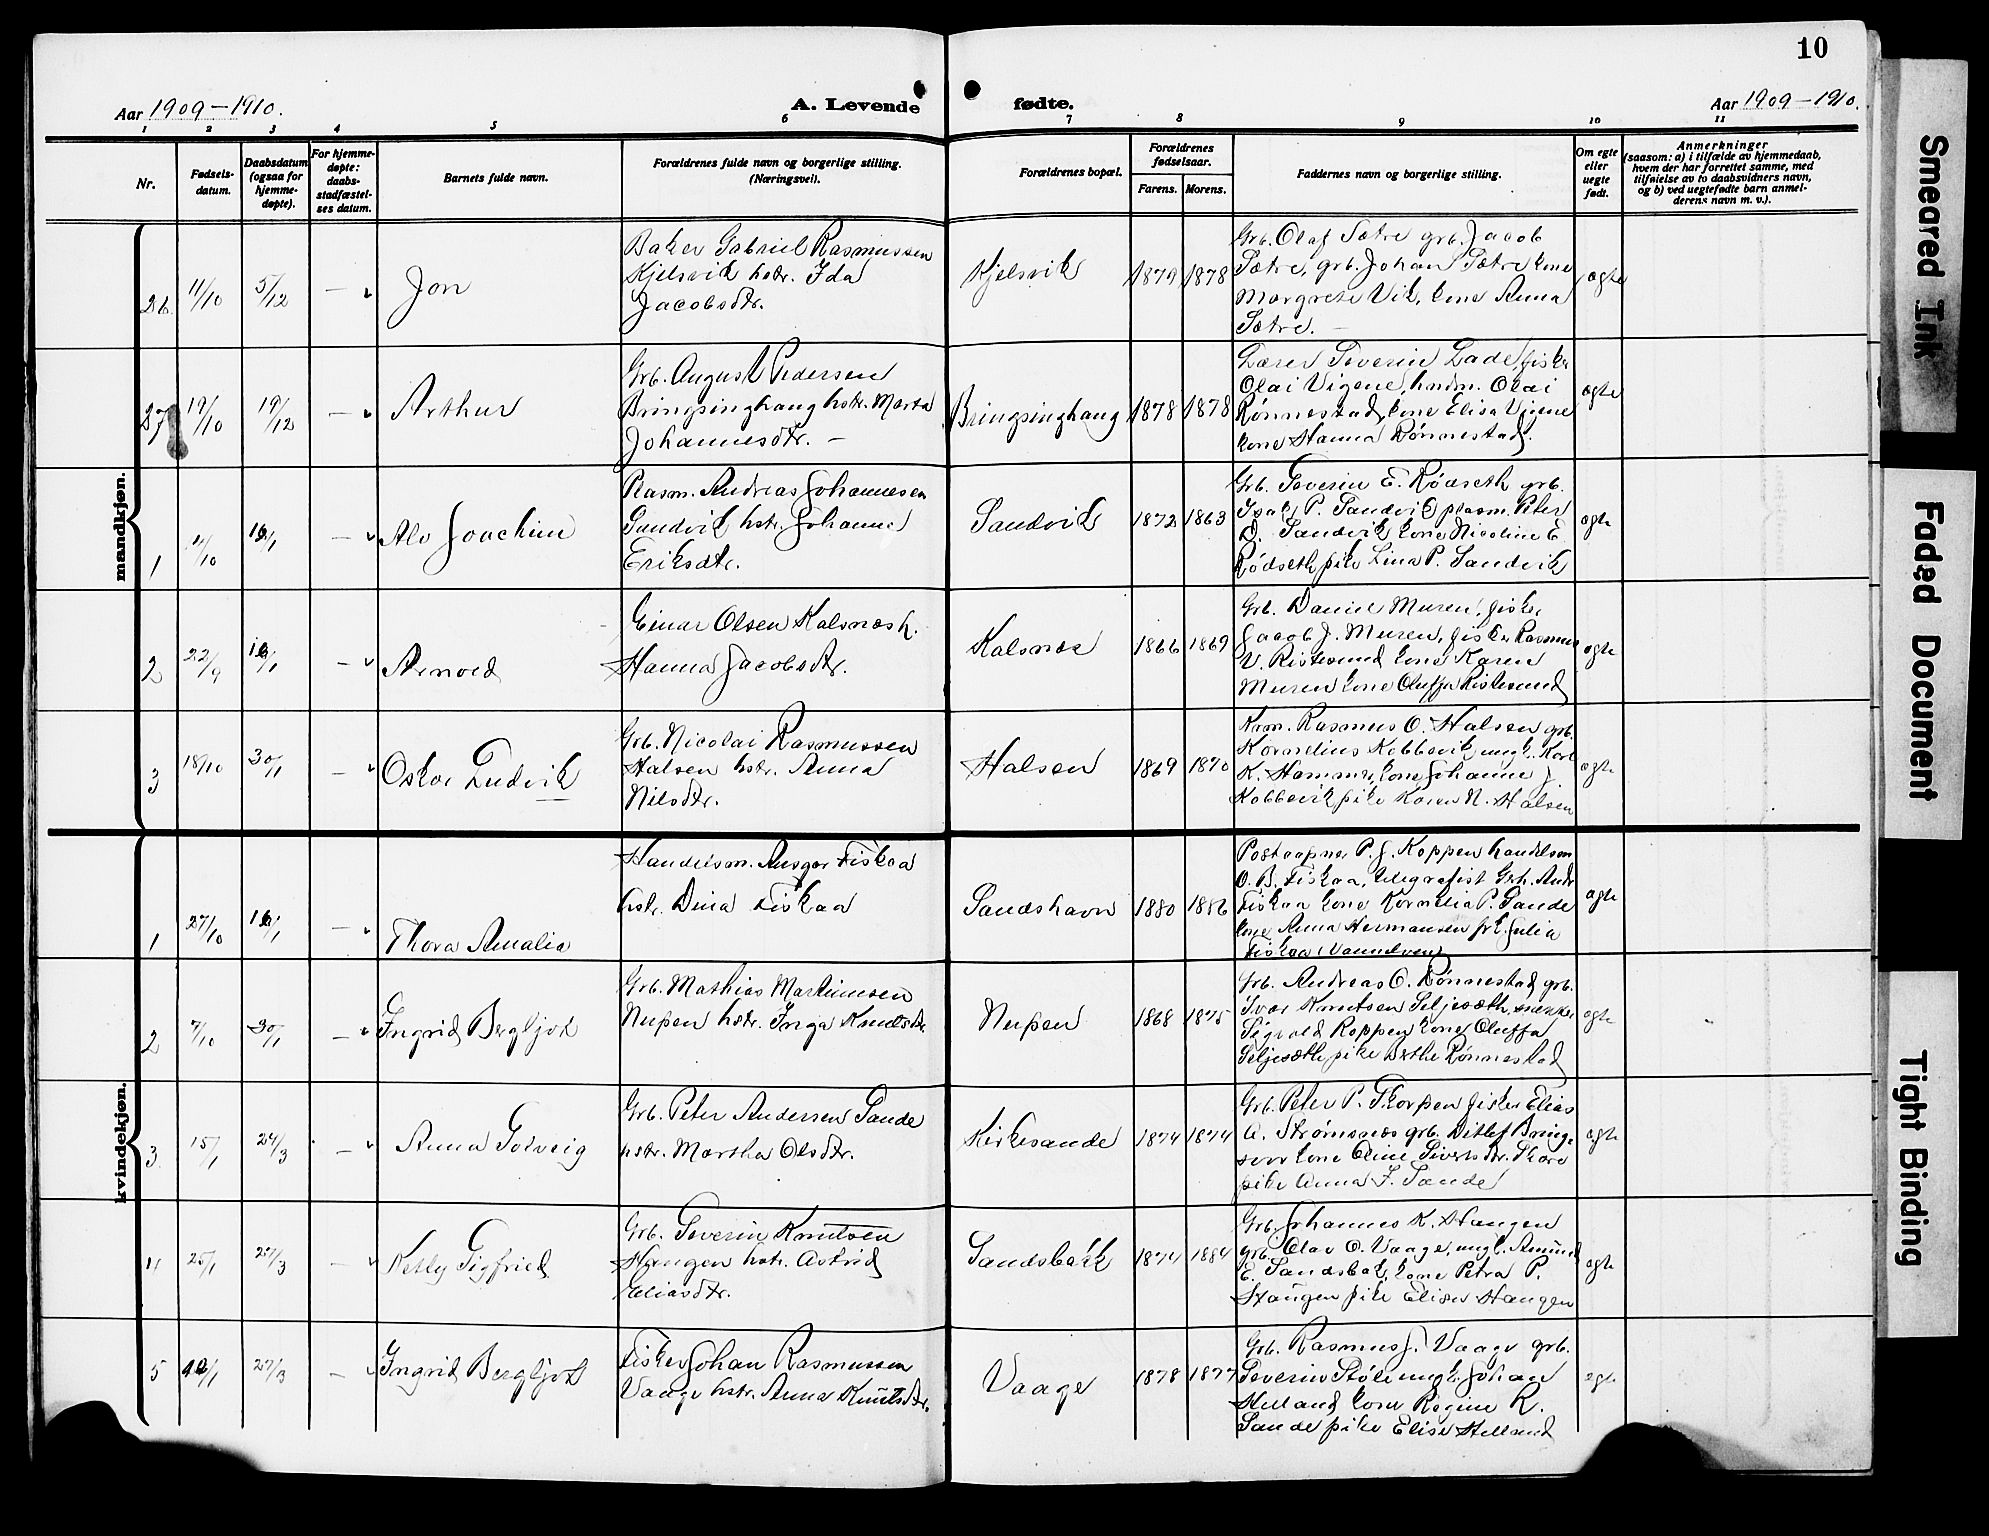 10
Aar 1909-1910.
A. Levende fødte.
Aar 1909-1910.
1 2 3 4 5 6 7 8 9 10 11
Nr.
Fødsels-
datum.
Daabsdatum
(ogsaa for
hjemme-
døpte).
For hjemme-
døpte:
daabs-
stadfæstel-
ses datum.
Barnets fulde navn.
Forældrenes fulde navn og borgerlige stilling.
(Næringsvei).
Forældrenes bopæl.
Forældrenes
fødselsaar.
Farens. Morens.
Faddernes navn og borgerlige stilling.
Om egte
eller
uegte
født.
Anmerkninger
(saasom: a) i tilfælde av hjemmedaab,
hvem der har forrettet samme, med
tilføielse av to daabsvidners navn,
og b) ved uegtefødte barn anmel-
derens navn m. v.).
mandkjøn.
26 11/10 5/12 —
Jon
Baker Gabriel Rasmussen
Kjelsvik hstr. Ida
Jacobsdtr.
Kjelsvik
1879 1878
Grb. Olaf Sætre grb. Jacob
Sætre, grb. Johan Sætre kone
Margrete Vik, kone Anna
Sætre. —
ægte
27 19/10 19/12 —
Arthur
Grb. August Pedersen
Bringsinghaug hstr. Marta
Johannesdtr. —
Bringsinghaug
1878 1878
Lærer Severin Lade, fisker
Olai Vigene, hndm. Olai
Rønnestad, kone Elisa Vigene
kone Hanna Rønnestad.
ægte
1 11/10 16/1 —
Alv Joachim
Plasm. Andreas Johannesen
Sandvik hstr. Johanne
Eriksdtr.
Sandvik
1872 1863
Grb. Severin E. Rødseth grb.
Isak P. Sandvik plasm. Peter
D. Sandvik kone Nicoline E.
Rødseth pike Lina P. Sandvik
egte
2 22/9 16/1 —
Arnold
Einar Olsen Kalsnæs h.
Hanna Jacobsdtr.
Kalsnæs
1866 1869
Grb. Daniel Muren, fisker
Jacob J. Muren, fisker Rasmus
V. Ristesund kone Karen
Muren kone Oluffa Ristesund
egte
3 18/10 30/1 —
Oskar Ludvik
Grb. Nicolai Rasmussen
Halsen hstr. Anna
Nilsdtr.
Halsen
1869 1870
Krm. Rasmus O. Halsen grb.
Kornelius Kobbevik ungk. Karl
K. Hammer, kone Johanne J.
Kobbevik pike Karen N. Halsen
egte
kvindekjøn.
1 27/10 16/1 —
Thora Amalia
Handelsm. Ansgar Fiskaa
hstr. Dina Fiskaa
Sandshavn
1880 1886
Postaapner P. J. Koppen handelsm
O. B. Fiskaa, telegrafist Grh. Andr
Fiskaa kone Kornelia P. Sande
kone Anna Hermansen frk. Julia
Fiskaa (Vannelven)
ægte
2 7/10 30/1 —
Ingrid Bergljot
Grb. Mathias Martinusen
Nupen hstr. Inga Knutsdtr
Nupen
1868 1875
Grb. Andreas O. Rønnestad grb.
Ivar Knutsen Seljesæth, snekker
Sigvald Koppen kone Oluffa
Seljesæth pike Berthe Rønnestad
egte
3 15/1 24/3 —
Anna Solveig
Grb. Peter Andersen Sande
hstr. Martha Olsdtr.
Kirkesande
1874 1874
Grb. Peter P. Thorpen fisker Elias
A. Strømsnæs grb. Ditlef Bringe
svor kone Oline Sivertsdtr. Skare
pike Anna F. Sande
egte
4 25/1 27/3 —
Ketty Sigfried
Grb. Severin Knutsen
Haugen hstr. Astrid
Eliasdtr.
Sandsbakk
1874 1884
Grb. Johannes K. Haugen
grb. Olav O. Vaage, ungk. Amund
E. Sandsbak, kone Petra P.
Haugen pike Elise Haugen
egte
5 12/1 27/3 —
Ingrid Bergljot
Fisker Johan Rasmussen
Vaage hstr. Anna Knutsdtr.
Vaage
1878 1877
Grb. Rasmus J. Vaage grb.
Severin Støle ungk. Johan
Helland kone Regine R.
Sande pike Elise Helland
egte
Smeared Ink
Faded Document
Tight Binding